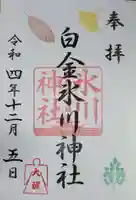 奉拝
氷川
神社
白金氷川神社
令和四年十二月五日